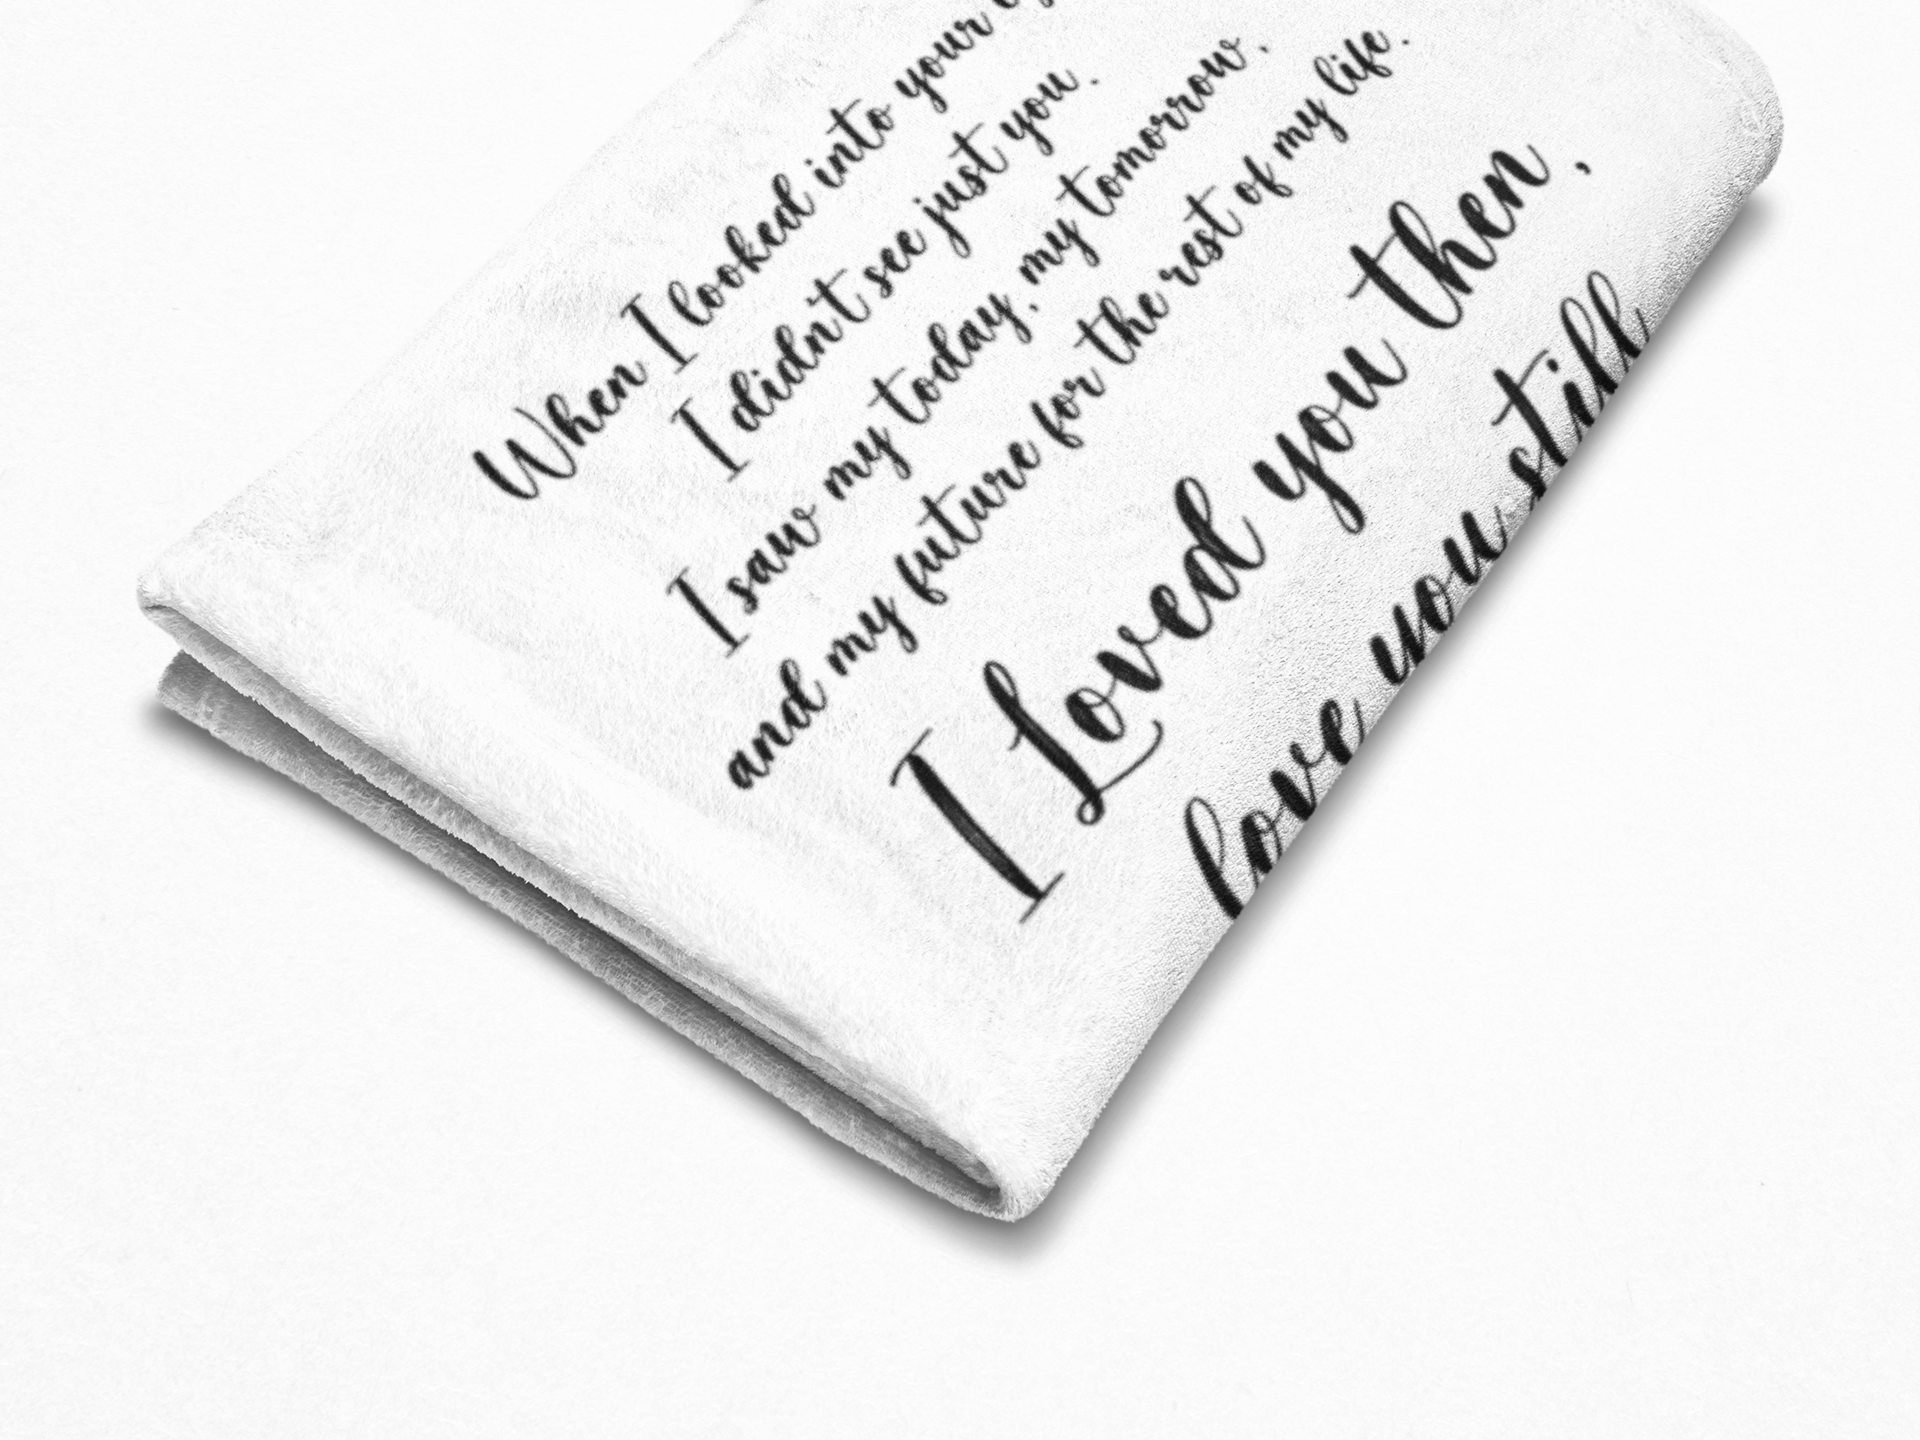 When I looked into your
I didn't see just you.
I saw my today, my tomorrow,
and my future for the rest of my life.
I Loved you then,
love you still